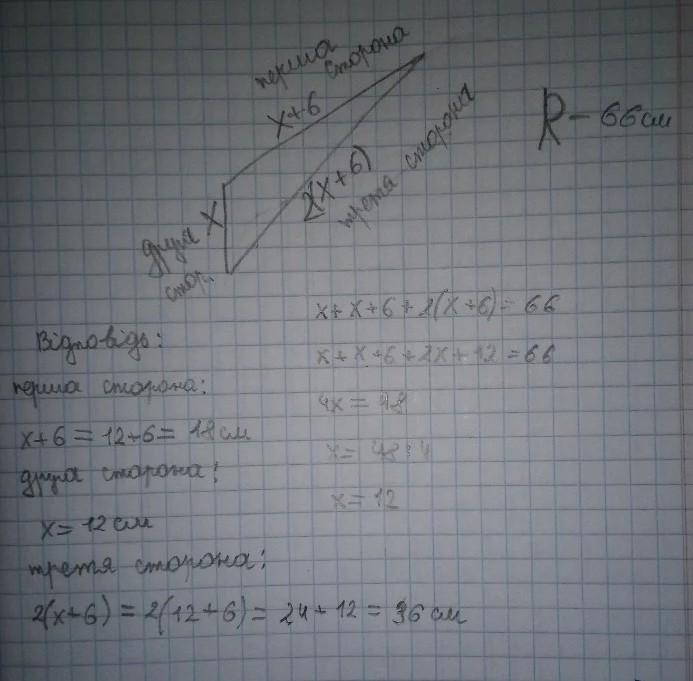 перша
сторона
x+6
P - 66см
2(x+6)
третя сторона
друга
стор.
x
x+x+6+2(x+6)=66
x+x+6+2x+12=66
4x=48
x=48:4
x=12
Відповідь:
перша сторона:
x+6=12+6=18см
друга сторона:
x=12см
третя сторона:
2(x+6)=2(12+6)=24+12=36см